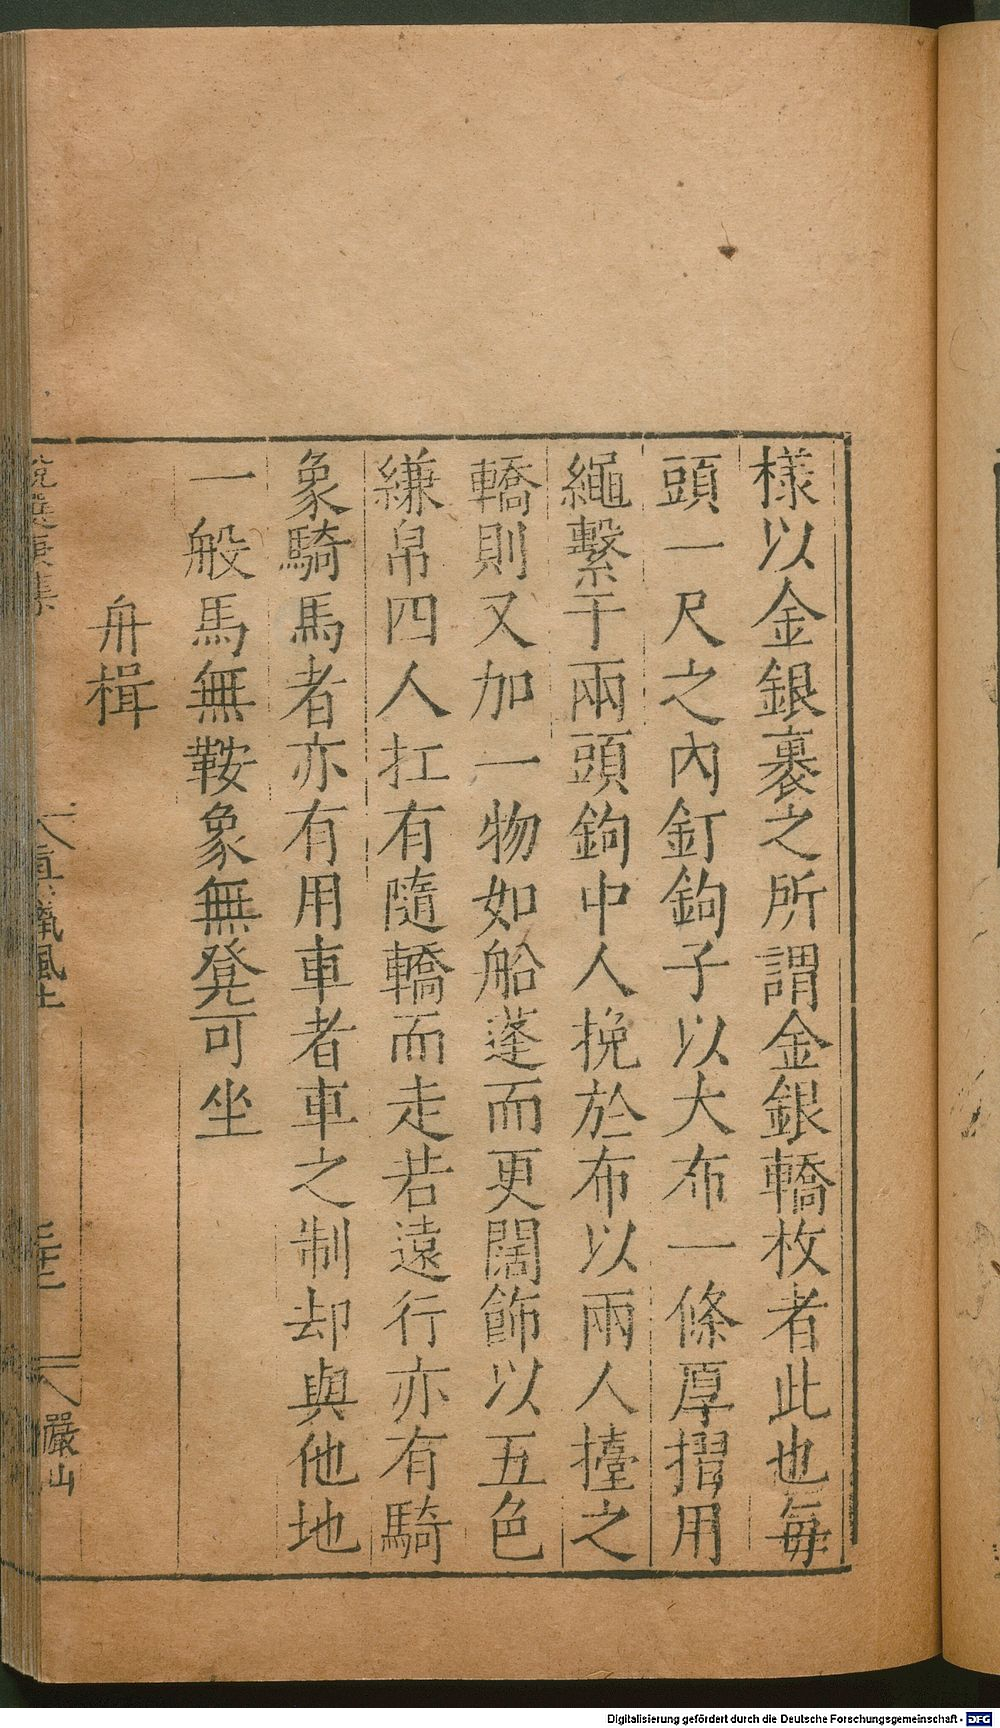 樣以金銀裹之所謂金銀轎杖者此也每
頭一尺之內釘鉤子以大布一條厚摺用
繩繫于兩頭鉤中人挽於布以兩人擡之
轎則又加一物如船蓬而更闊飾以五色
縑帛四人扛有隨轎而走若遠行亦有騎
象騎馬者亦有用車者車之制却與他地
一般馬無鞍象無凳可坐
舟楫
說選 集
真臘風土
嚴山
Digitalisierung gefördert durch die Deutsche Forschungsgemeinschaft - DFG